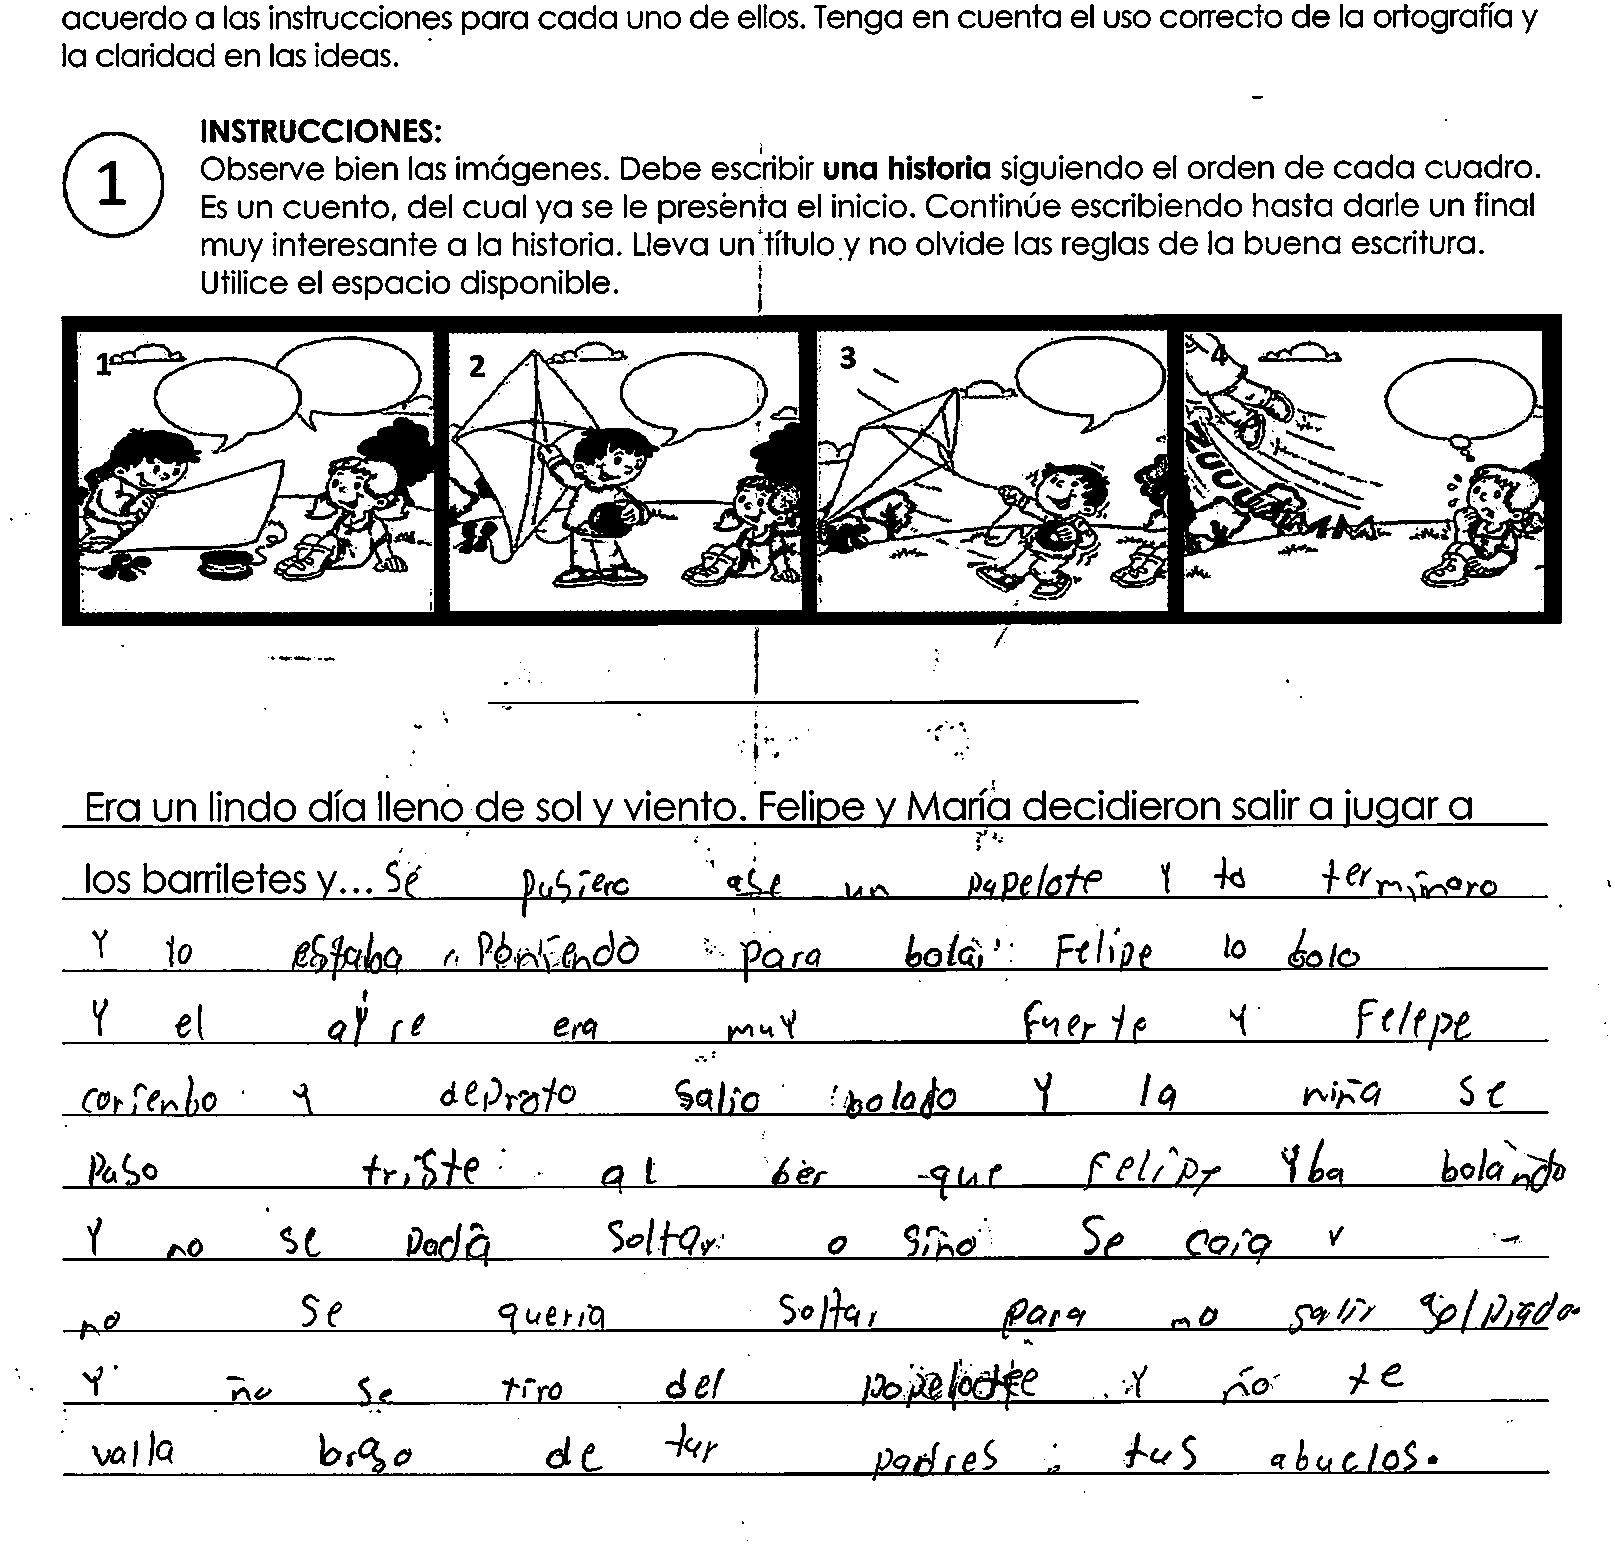 acuerdo a las instrucciones para cada uno de ellos. Tenga en cuenta el uso correcto de la ortografía y
la claridad en las ideas.
1
INSTRUCCIONES:
Observe bien las imágenes. Debe escribir una historia siguiendo el orden de cada cuadro.
Es un cuento, del cual ya se le presenta el inicio. Continúe escribiendo hasta darle un final
muy interesante a la historia. Lleva un título y no olvide las reglas de la buena escritura.
Utilice el espacio disponible.
1 2 3 4
Era un lindo día lleno de sol y viento. Felipe y María decidieron salir a jugar a
los barriletes y... Se pusiero ase un papelote Y lo terminaro
Y lo estaba poniendo para bolar Felipe lo bolo
Y el ayre era muy fuerte y Felepe
coriendo y deproto salio bolado Y la niña se
puso triste al ber que Felipe Yba bolando
Y no se podia soltar o sino se caia y
no se queria soltar para no salir golpiado
Y no se tiro del Y no te
valla de tus padres tus abuelos.